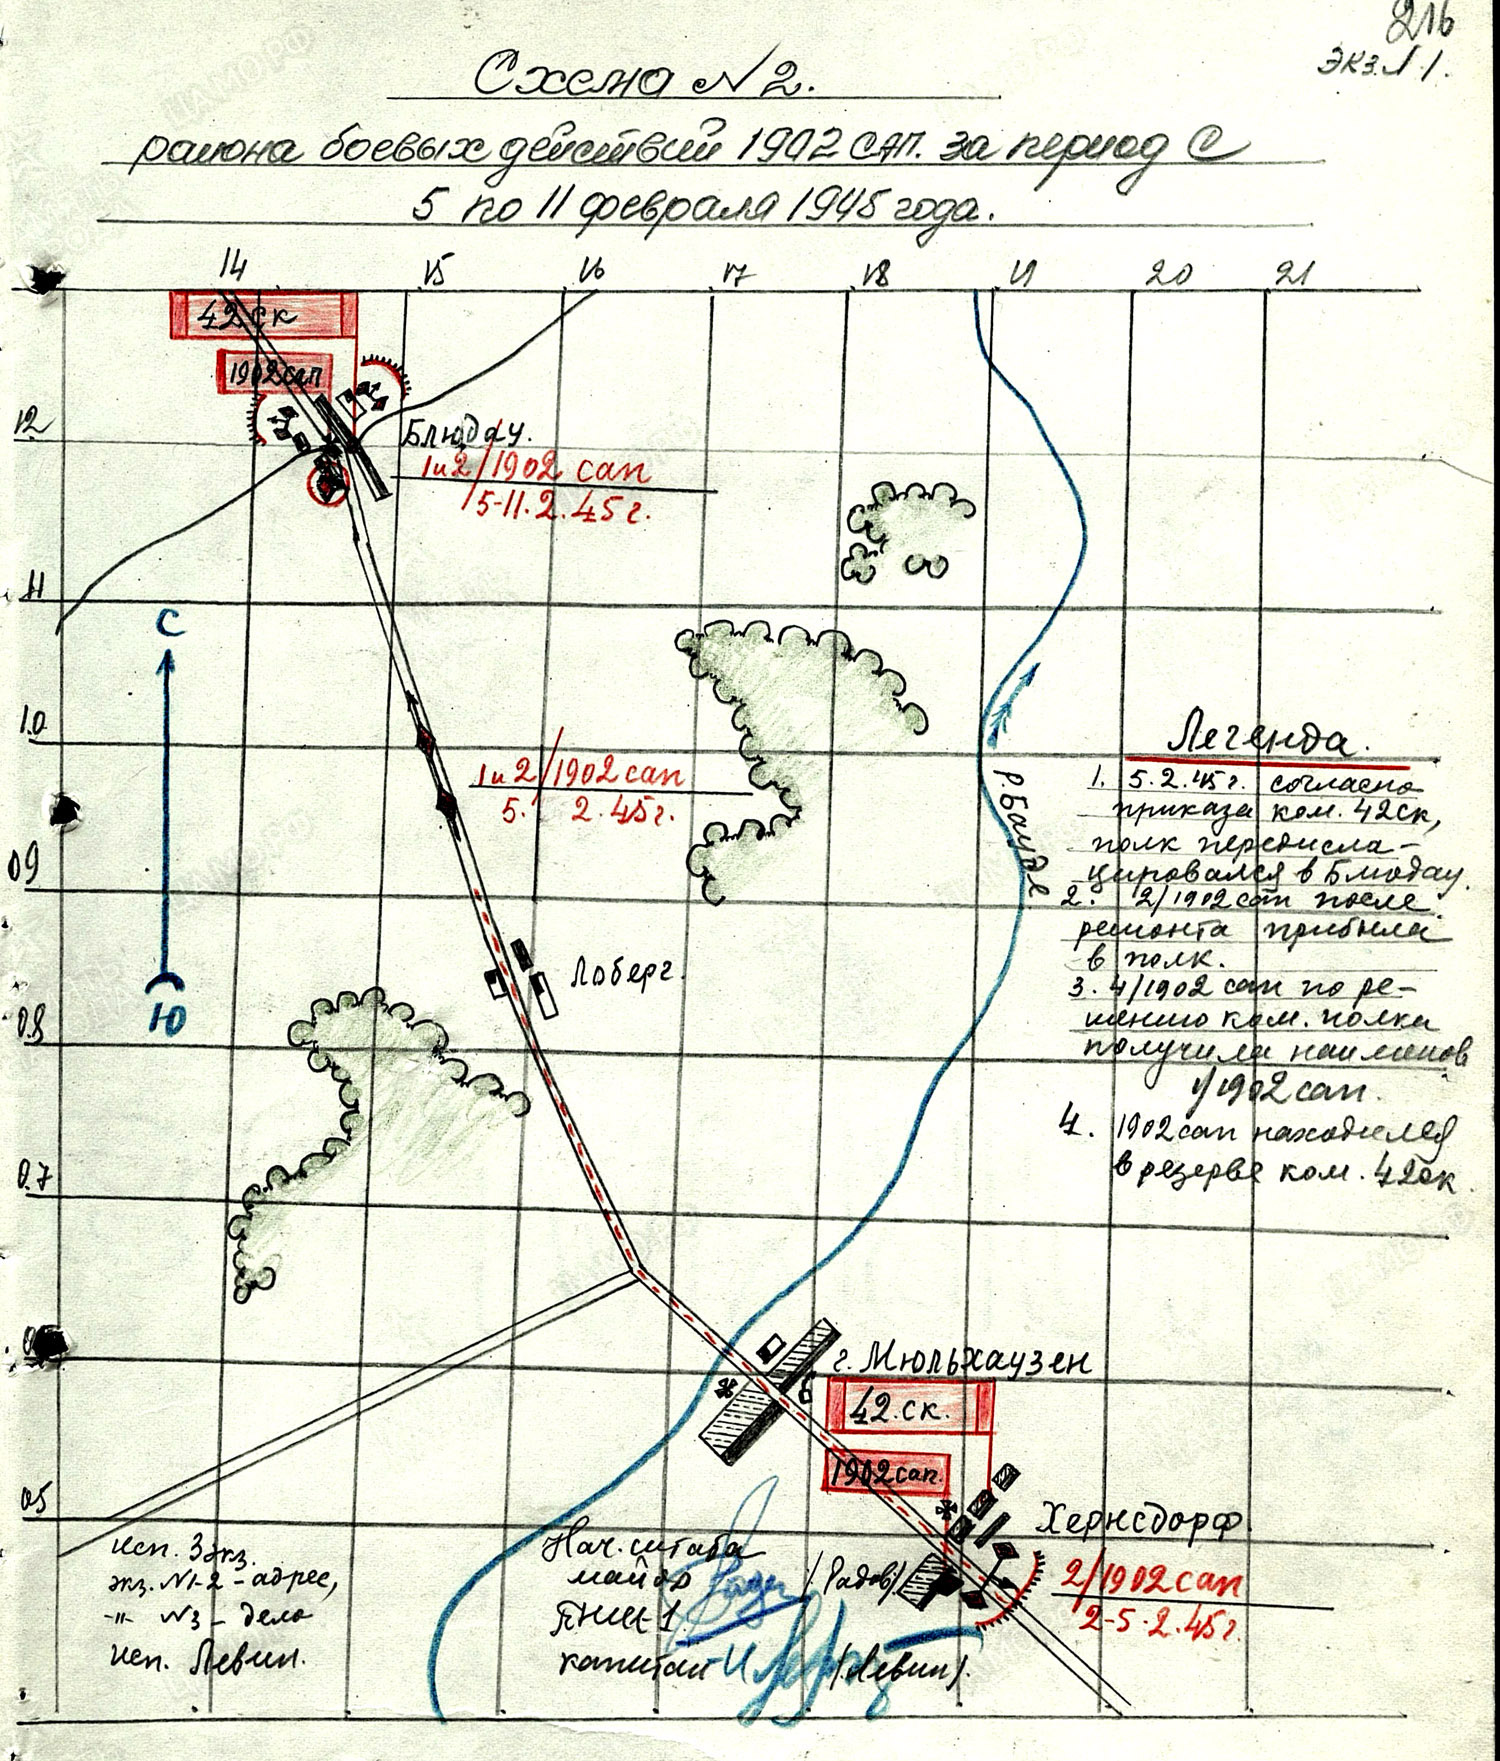 216
экз. N 1.
Схема N 2.
района боевых действий 1902 САП. за период с
5 по 11 февраля 1945 года.
14 15 16 17 18 19 20 21
42 ск
1902 сап
12
Блюдау.
1 и 2/1902 сап
5-11.2.45 г.
11
С
10
1 и 2/1902 сап
5. 2.45 г.
Легенда.
1. 5.2.45 г. согласно
приказа ком. 42 ск,
полк передисла-
цировался в Блюдау.
2. 2/1902 сап после
ремонта прибыла
в полк.
3. 4/1902 сап по ре-
шению ком. полка
получила наименов
1/1902 сап.
4. 1902 сап находился
в резерве ком. 42 ск.
р. Бауде.
09
Лоберг.
08
Ю
07
г. Мюльхаузен
42. ск.
1902 сап.
05
Хернсдорф
2/1902 сап
2-5.2.45 г.
исп. 3 экз.
экз. N1-2 - адрес,
-"- N3 - дело
исп. Левин.
Нач. штаба
майор /Радов/
ПНШ-1
капитан /Левин/.